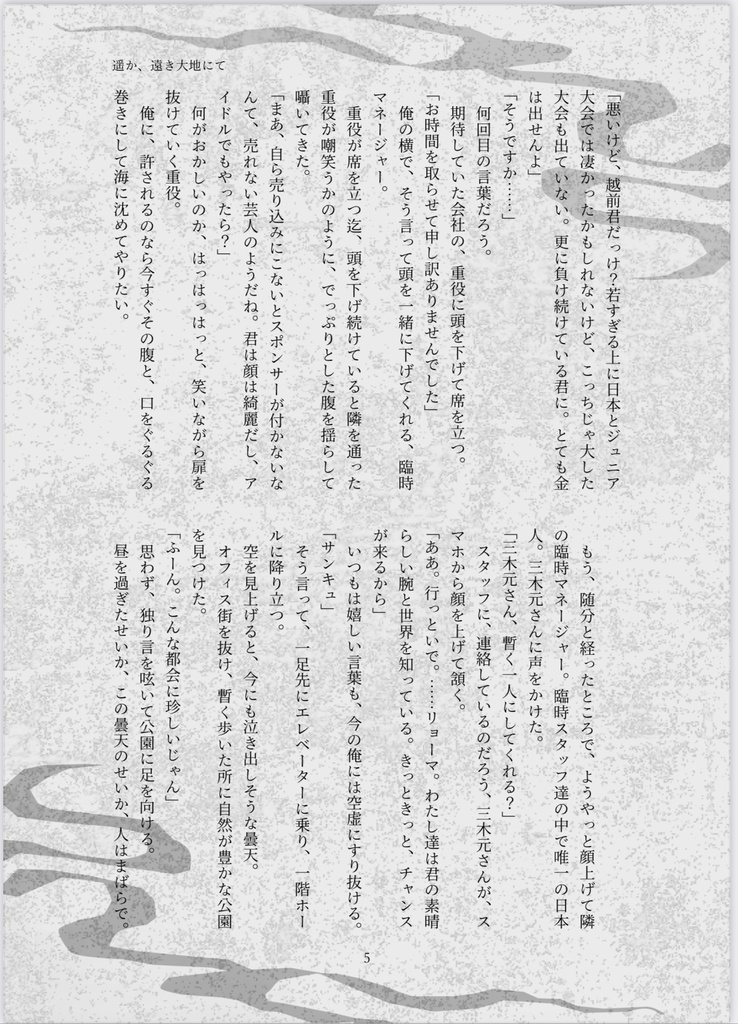 遥か、遠き大地にて
「悪いけど、越前君だっけ？若すぎる上に日本とジュニア
大会では凄かったかもしれないけど、こっちじゃ大した
大会も出ていない。更に負け続けている君に。とても金
は出せんよ」
「そうですか……」
何回目の言葉だろう。
期待していた会社の、重役に頭を下げて席を立つ。
「お時間を取らせて申し訳ありませんでした」
俺の横で、そう言って頭を一緒に下げてくれる、臨時
マネージャー。
重役が席を立つ迄、頭を下げ続けていると隣を通った
重役が嘲笑うかのように、でっぷりとした腹を揺らして
囁いてきた。
「まあ、自ら売り込みにこないとスポンサーが付かないな
んて、売れない芸人のようだね。君は顔は綺麗だし、ア
イドルでもやったら？」
何がおかしいのか、はっはっはっと、笑いながら扉を
抜けていく重役。
俺に、許されるのなら今すぐその腹と、口をぐるぐる
巻きにして海に沈めてやりたい。
もう、随分と経ったところで、ようやっと顔上げて隣
の臨時マネージャー。臨時スタッフ達の中で唯一の日本
人。三木元さんに声をかけた。
「三木元さん、暫く一人にしてくれる？」
スタッフに、連絡しているのだろう、三木元さんが、ス
マホから顔を上げて頷く。
「ああ。行っといで。……リョーマ。わたし達は君の素晴
らしい腕と世界を知っている。きっときっと、チャンス
が来るから」
いつもは嬉しい言葉も、今の俺には空虚にすり抜ける。
「サンキュ」
そう言って、一足先にエレベーターに乗り、一階ホー
ルに降り立つ。
空を見上げると、今にも泣き出しそうな曇天。
オフィス街を抜け、暫く歩いた所に自然が豊かな公園
を見つけた。
「ふーん。こんな都会に珍しいじゃん」
思わず、独り言を呟いて公園に足を向ける。
昼を過ぎたせいか、この曇天のせいか、人はまばらで。
5